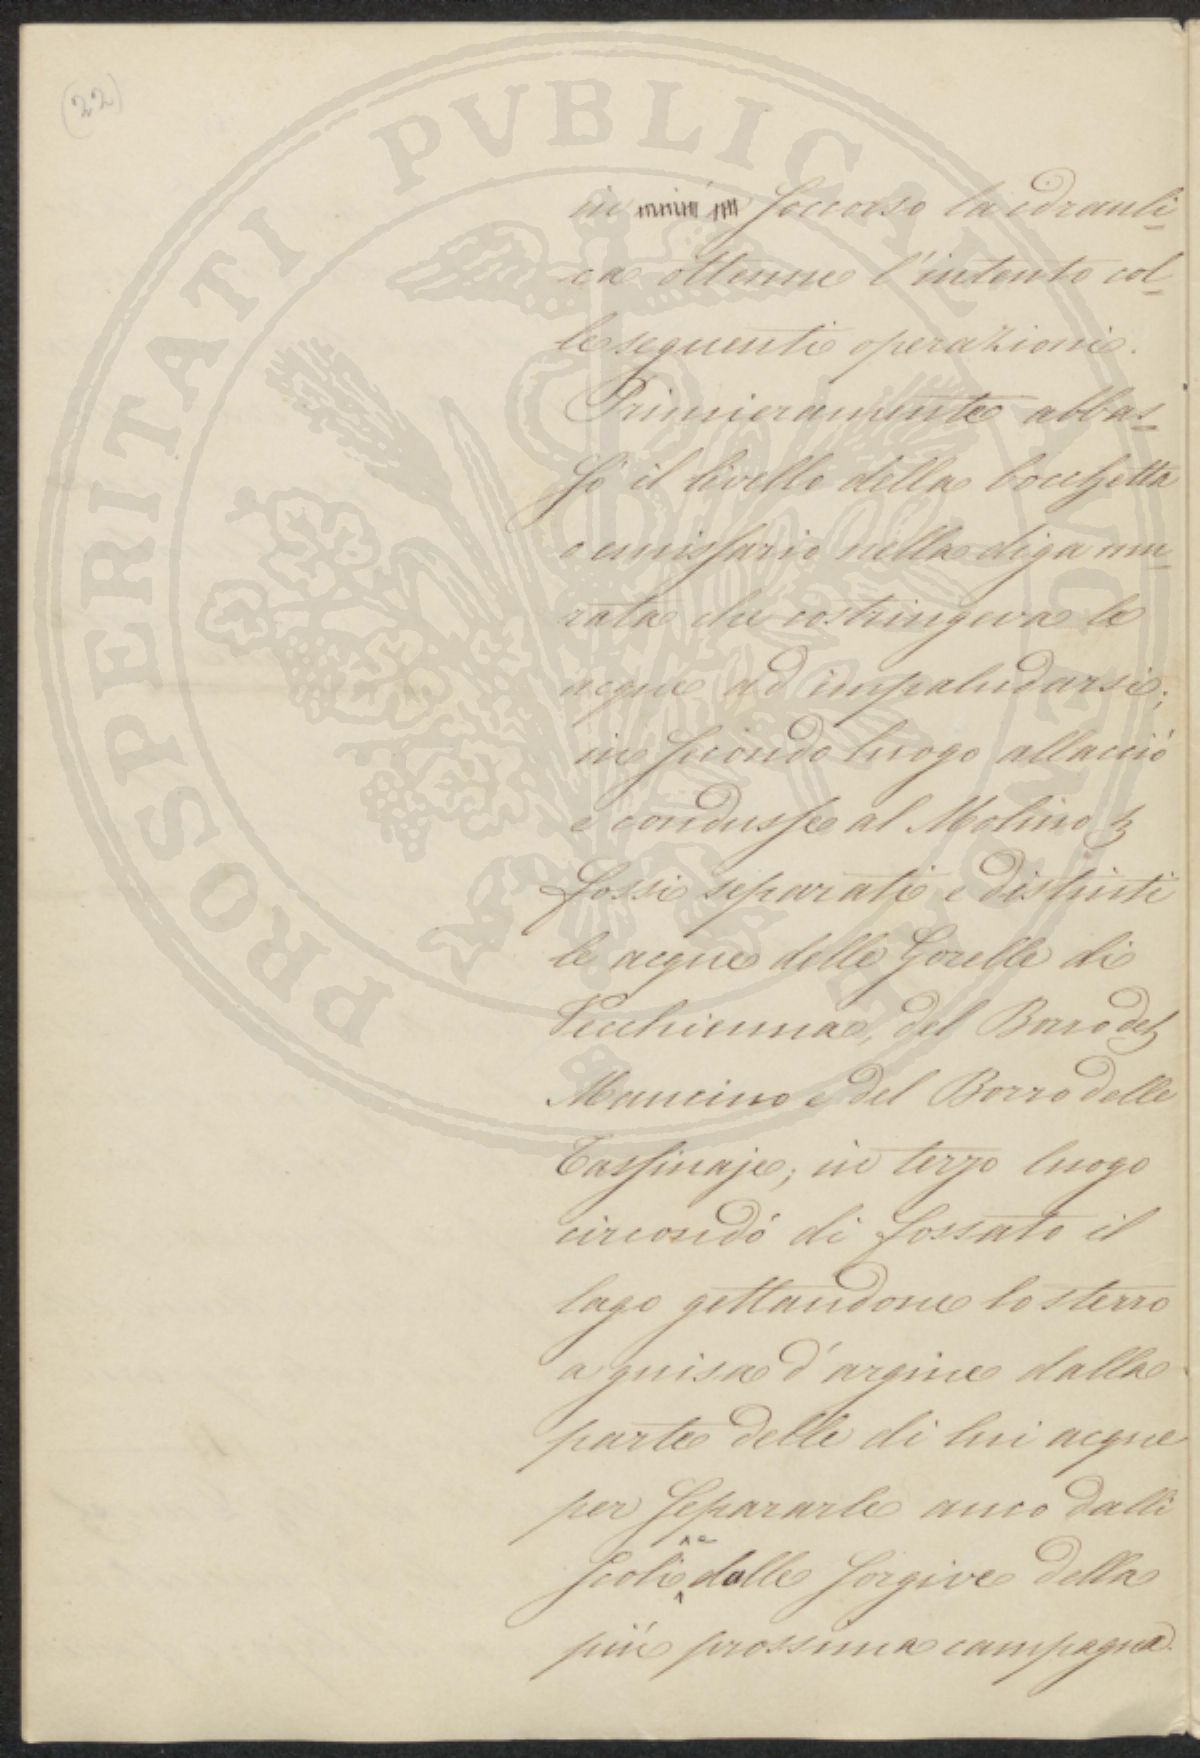 (22)
PROSPERITATI PVBLICAE
in soccorso la idrauli-
ca ottenne l'intento col-
le seguenti operazioni.
Primieramente abbas-
sò il livello della bocchetta
o emissario nella diga mu-
rata che costringeva le
acque ad impaludarsi;
in secondo luogo allacciò
e condusse al Molino
fossi separati e distinti
le acque delle Gorelle di
Vecchienna, del Borro del
Mancino e del Borro delle
Tassinaje; in terzo luogo
circondò di fossato il
lago gettandone lo sterro
a guisa d'argine dalla
parte delle di lui acque
per separarle anco dalli
scoli e dalle sorgive della
più prossima campagna.